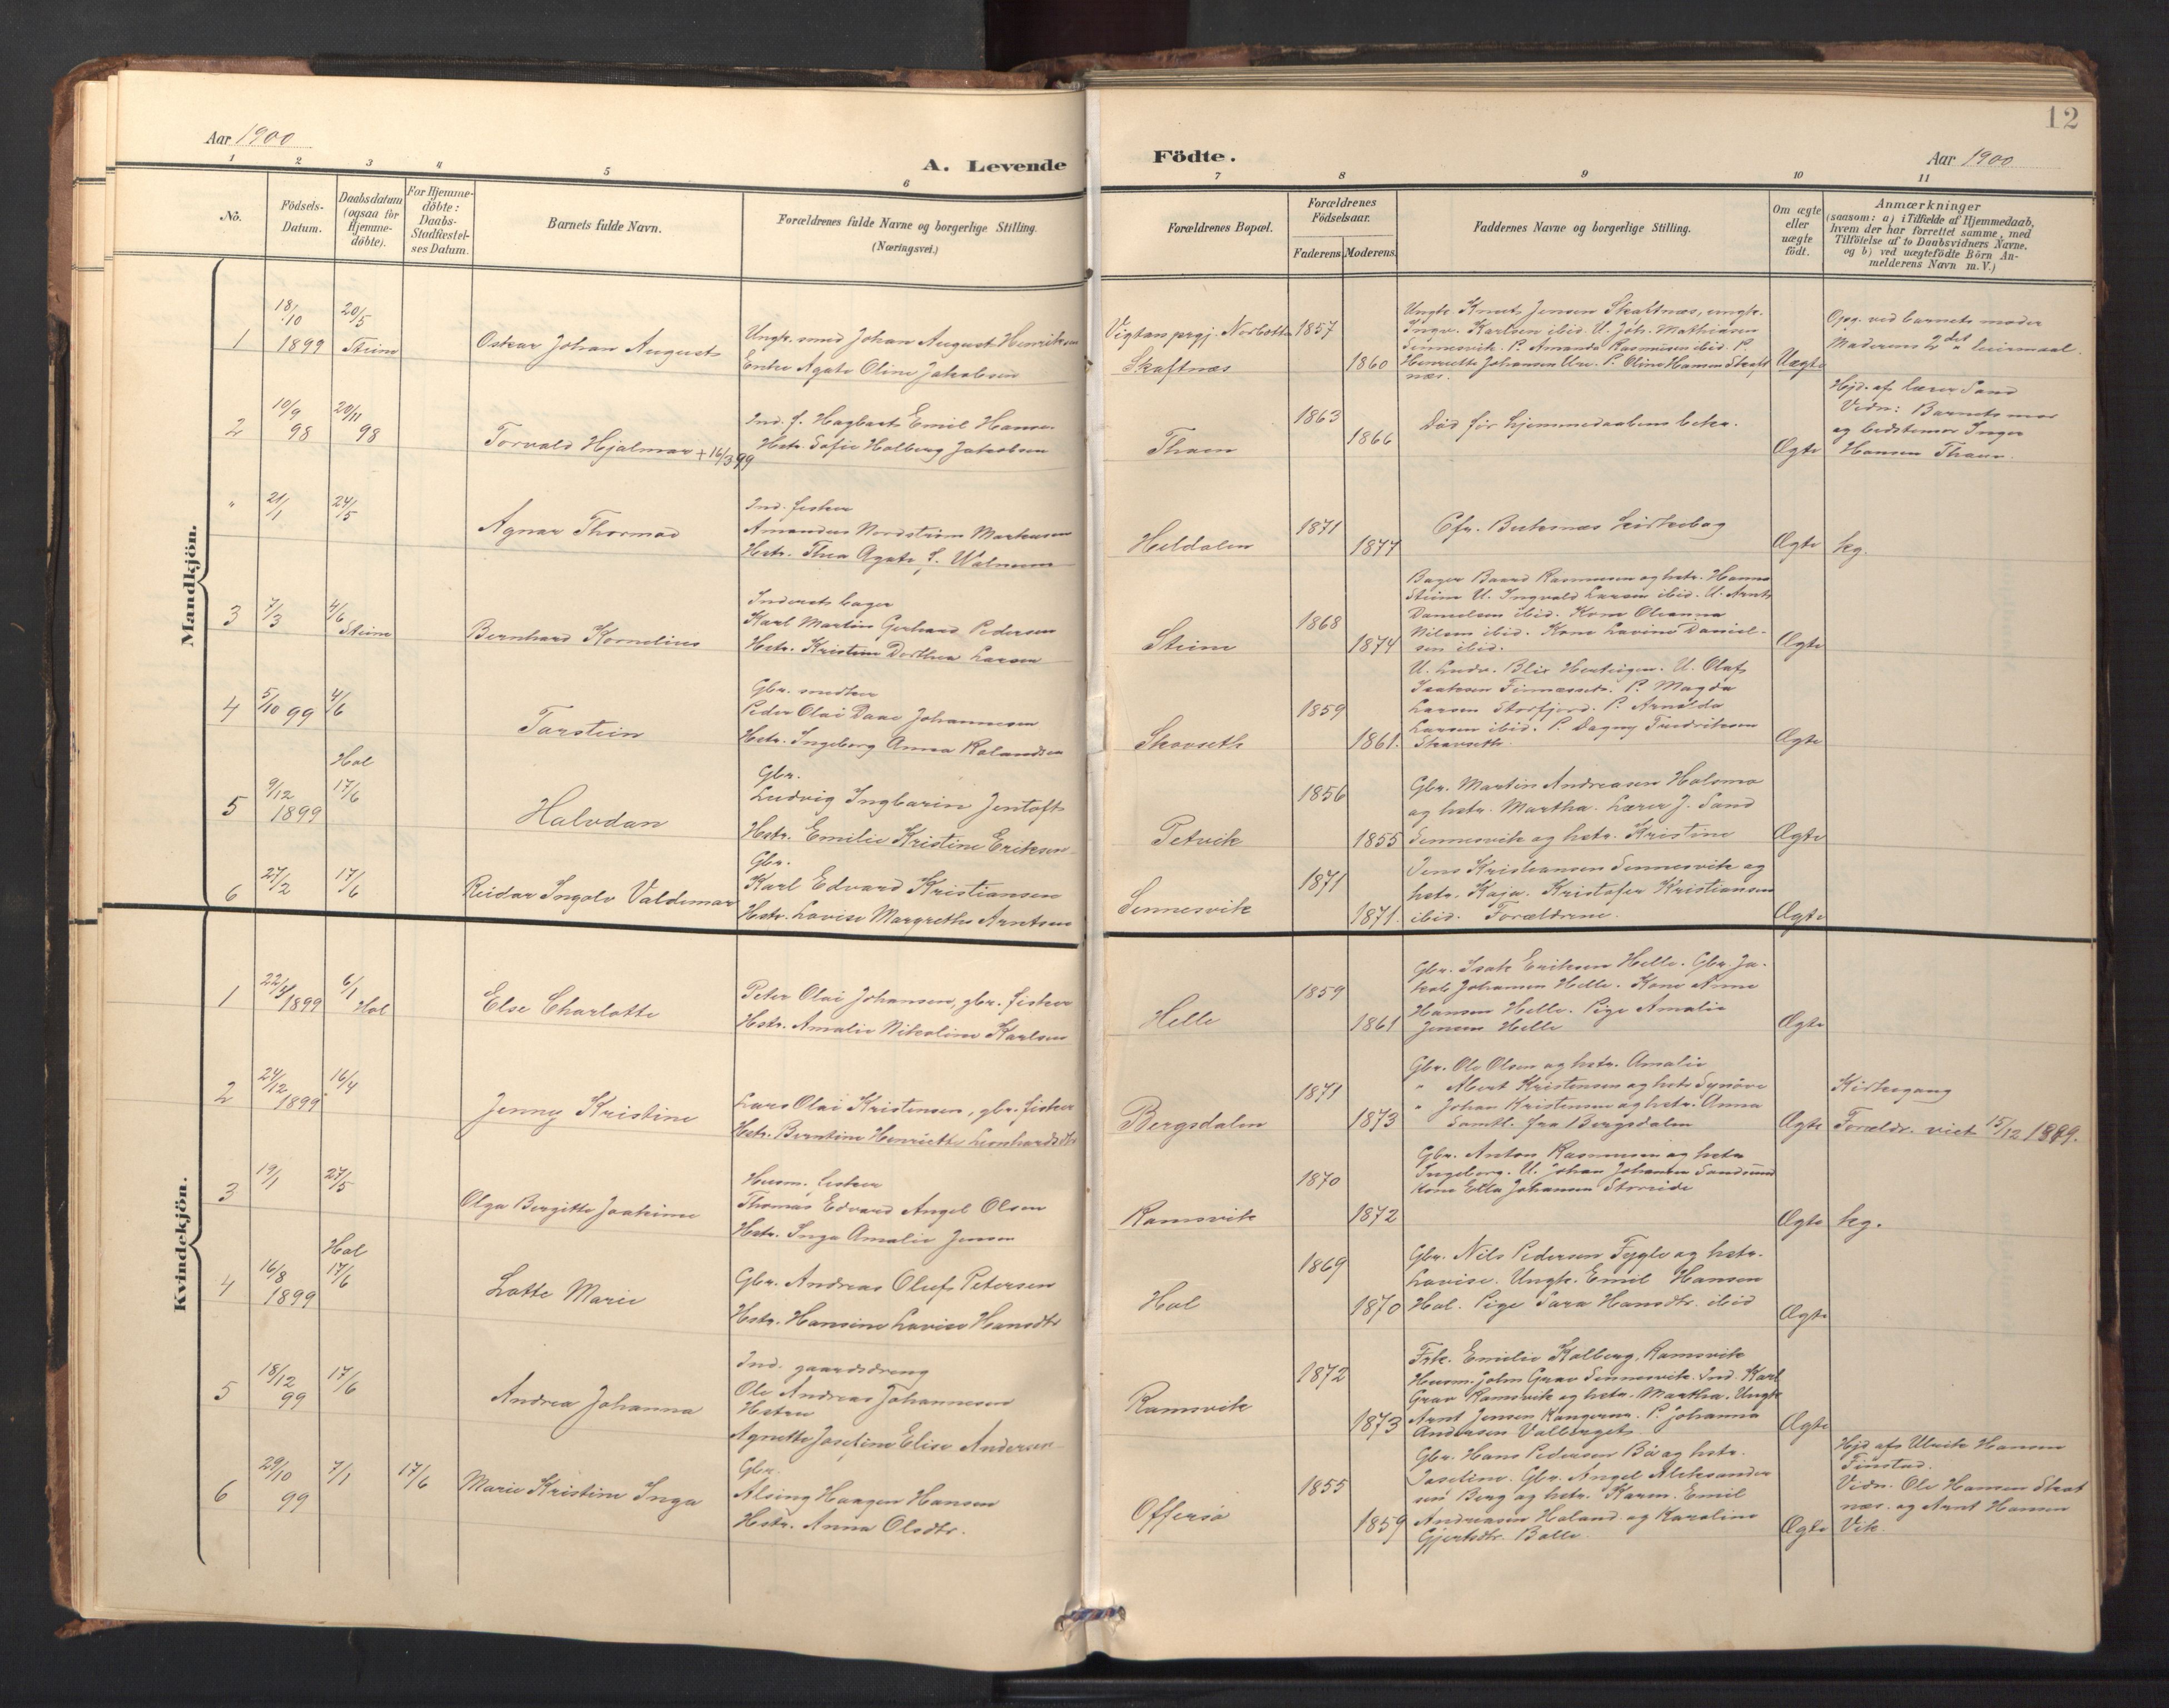 Aar 1900
A. Levende
1 2 3 4 5 6
No.
Födsels-Datum.
Daabsdatum (ogsaa for Hjemmedöbte).
For Hjemmedöbte: Daabs-Stadfæstelses Datum.
Barnets fulde Navn.
Forældrenes fulde Navne og borgerlige Stilling.
(Næringsvei.)
Mandkjön.
1 18/10 1899 20/5 Steine
Oskar Johan August
Ungk. smed Johan August Henriksen
Enke Agate Oline Jakobsen
2 10/9 98 20/11 98
Torvald Hjalmar + 16/3 99
Ind. f. Hagbart Emil Hansen
Hstr. Sofie Holberg Jakobsen
" 21/1 24/5
Agnar Thormod
Ind. fisker
Amandus Nordstrøm Markussen
Hstr. Thea Agate
3 7/3 4/6 Steine
Bernhard Kornelius
Inderst bager
Karl Martin Gerhard Pedersen
Hstr. Kristine Dorthea Larsen
4 5/10 99 4/6
Torstein
Gbr. smed
Peder Olai Daae Johannesen
Hstr. Ingeborg Anna Rolandsen
Hol
5 9/12 1899 17/6
Halvdan
Gbr.
Ludvig Ingbarin Jentoft
Hstr. Emilie Kristine Eriksen
6 27/2 17/6
Reidar Ingolv Valdemar
Gbr.
Karl Edvard Kristiansen
Hstr. Lovise Margrethe Arntsen
Kvindekjön.
1 22/4 1899 6/1 Hol
Else Charlotte
Peter Olai Johansen, gbr. fisker
Hstr. Amalie Nikoline Karlsen
2 24/12 1899 16/4
Jenny Kristine
Lars Olai Kristensen, gbr. fisker
Hstr. Berntine Henriette Leonhardsdtr
3 19/1 27/5
Olga Bergitte Joakime
Husm. fisker
Thomas Edvard Angel Olsen
Hstr. Inga Amalie Jensen
Hol
4 16/8 1899 17/6
Lotte Marie
Gbr. Andreas Oluf Petersen
Hstr. Hansine Lovise Hansdtr
5 18/12 99 17/6
Andrea Johanna
Ind. gaardsdreng
Ole Andreas Johannesen
Hstru
Agnette Josefine Elise Andersen
6 29/10 99 7/1 17/6
Marie Kristine Inga
Gbr.
Alsing Haagen Hansen
Hstr. Anna Olsdtr.
12
Födte.
Aar 1900
7 8 9 10 11
Forældrenes Bopæl.
Forældrenes Födselsaar.
Faderens. Moderens.
Faddernes Navne og borgerlige Stilling.
Om ægte eller uægte födt.
Anmærkninger
(saasom: a) i Tilfælde af Hjemmedaab,
hvem der har forrettet samme, med
Tilföielse af to Daabsvidners Navne,
og b) ved uægtefödte Börn Anmelderens Navn m.V.)
Vigtan prgj. Norbotten 1857
Skaftnæs 1860
Ungk. Knut Jensen Skaftnæs, ungk.
Ingv. Karlsen ibid. U. Joh. Mathiasen
Sennesvik. P. Amanda Rasmusen ibid. P.
Henriette Johansen Ure. P. Oline Hansen Skaftnæs.
Uægte
Opg. ved barnets moder
Moderens 2det leiermaal.
Thoen 1863 1866
Död för hjemmedaabens bekr.
Ægte
Hjd. af lærer Sand
Vidn: Barnets mor
og bedstemor Inger
Hansen Thoen.
Heldalen 1871 1877
Cfr. Buksnæs kirkebog
Ægte
kg.
Steine 1868 1874
Bager Baard Rasmussen og hstr. Hanna
Steine U. Ingvald Larsen ibid. U. Arnt
Danielsen ibid. Kone Oleanna
Nilsen ibid. Kone Lavine Danielsen ibid.
Ægte
Skovseth 1859 1861.
U. Ludv. Blix Hertvigsen. U. Olaf
Isaksen Finnæsset. P. Magda
Larsen Storfjord. P. Arnolda
Larsen ibid. P. Dagny Fredriksen
Skovseth.
Ægte
Petvik 1856 1855
Gbr. Martin Andreasen Holsmo
og hstr. Martha. Lærer J. Sand
Sennesvik og hstr. Kristine
Ægte
Sennesvik 1871 1871.
Jens Kristiansen Sennesvik og
hstr. Kaja. Kristofer Kristiansen
ibid. Forældrene.
Ægte
Helle 1859 1861
Gbr. Isak Eriksen Helle. Gbr. Jakob Johansen Helle. Kone Anne
Hansen Helle. Pige Amalie
Jensen Helle
Ægte
Bergsdalen 1871 1873
Gbr. Ole Olsen og hstr. Amalie
" Albert Kristensen og hstr Synöve
" Johan Kristensen og hstr. Anna
Samtl. fra Bergsdalen
Ægte
Kirkegang
Forældr. viet 15/12 1889.
Ramsvik 1870 1872
Gbr. Anton Rasmusen og hstr
Ingeborg. U. Johan Johansen Sandsund
Kone Ella Johansen Storeide
Ægte
kg.
Hol 1869 1870
Gbr. Nils Pedersen Fygle og hstr.
Lovise. Ungk. Emil Hansen
Hol. Pige Sara Hansdtr. ibid
Ægte
Ramsvik 1872 1873
Frk. Emilie Kolberg, Ramsvik
Husm. John Grav Sennesvik. Ind. Karl
Grav Ramsvik og hstr. Martha. Ungk
Arnt Jensen Kangerur. P. Johanna
Andersen Valberget.
Ægte
Offersö 1855 1859
Gbr. Hans Pedersen Bö og hstr.
Josefine. Gbr. Angel Aleksandersen Berg og hstr. Karen. Emil
Andreasen Holand og Karoline
Gjertsdtr. Balle.
Ægte
Hjd af Ulrik Hansen
Finstad.
Vidn. Ole Hansen Skotnæs. og Arnt Hansen
Vik.